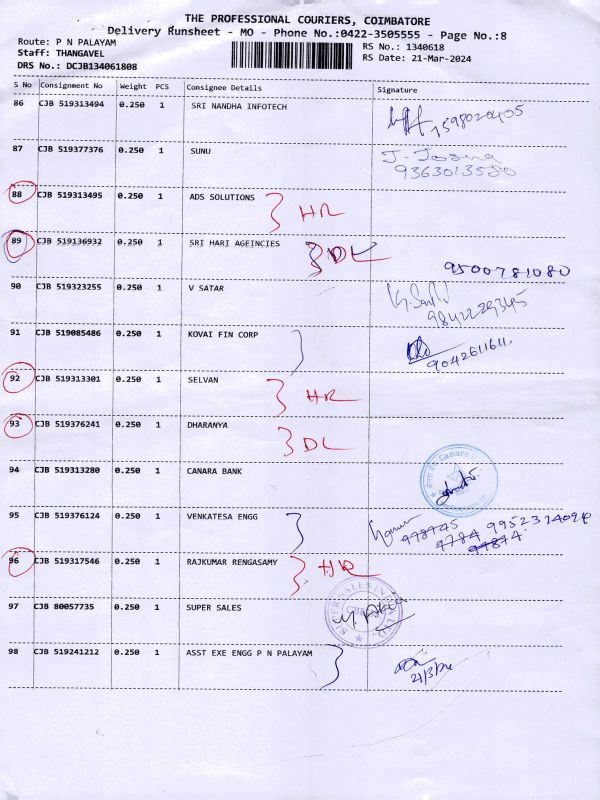 THE PROFESSIONAL COURIERS, COIMBATORE
Delivery Runsheet - MO - Phone No.:0422-3505555 - Page No.:8
Route: P N PALAYAM
Staff: THANGAVEL
DRS No.: DCJB134061808
RS No.: 1340618
RS Date: 21-Mar-2024
S No Consignment No Weight PCS Consignee Details Signature
86 CJB 519313494 0.250 1 SRI NANDHA INFOTECH 7598020405
87 CJB 519377376 0.250 1 SUNU J. Josna
9363013580
88 CJB 519313495 0.250 1 ADS SOLUTIONS HR
89 CJB 519136932 0.250 1 SRI HARI AGEINCIES DL 9500781080
90 CJB 519323255 0.250 1 V SATAR
9842229345
91 CJB 519085486 0.250 1 KOVAI FIN CORP 9042611611
92 CJB 519313301 0.250 1 SELVAN HR
93 CJB 519376241 0.250 1 DHARANYA DL
94 CJB 519313280 0.250 1 CANARA BANK Canara
95 CJB 519376124 0.250 1 VENKATESA ENGG 9952314024
96 CJB 519317546 0.250 1 RAJKUMAR RENGASAMY HR
97 CJB 80057735 0.250 1 SUPER SALES
98 CJB 519241212 0.250 1 ASST EXE ENGG P N PALAYAM